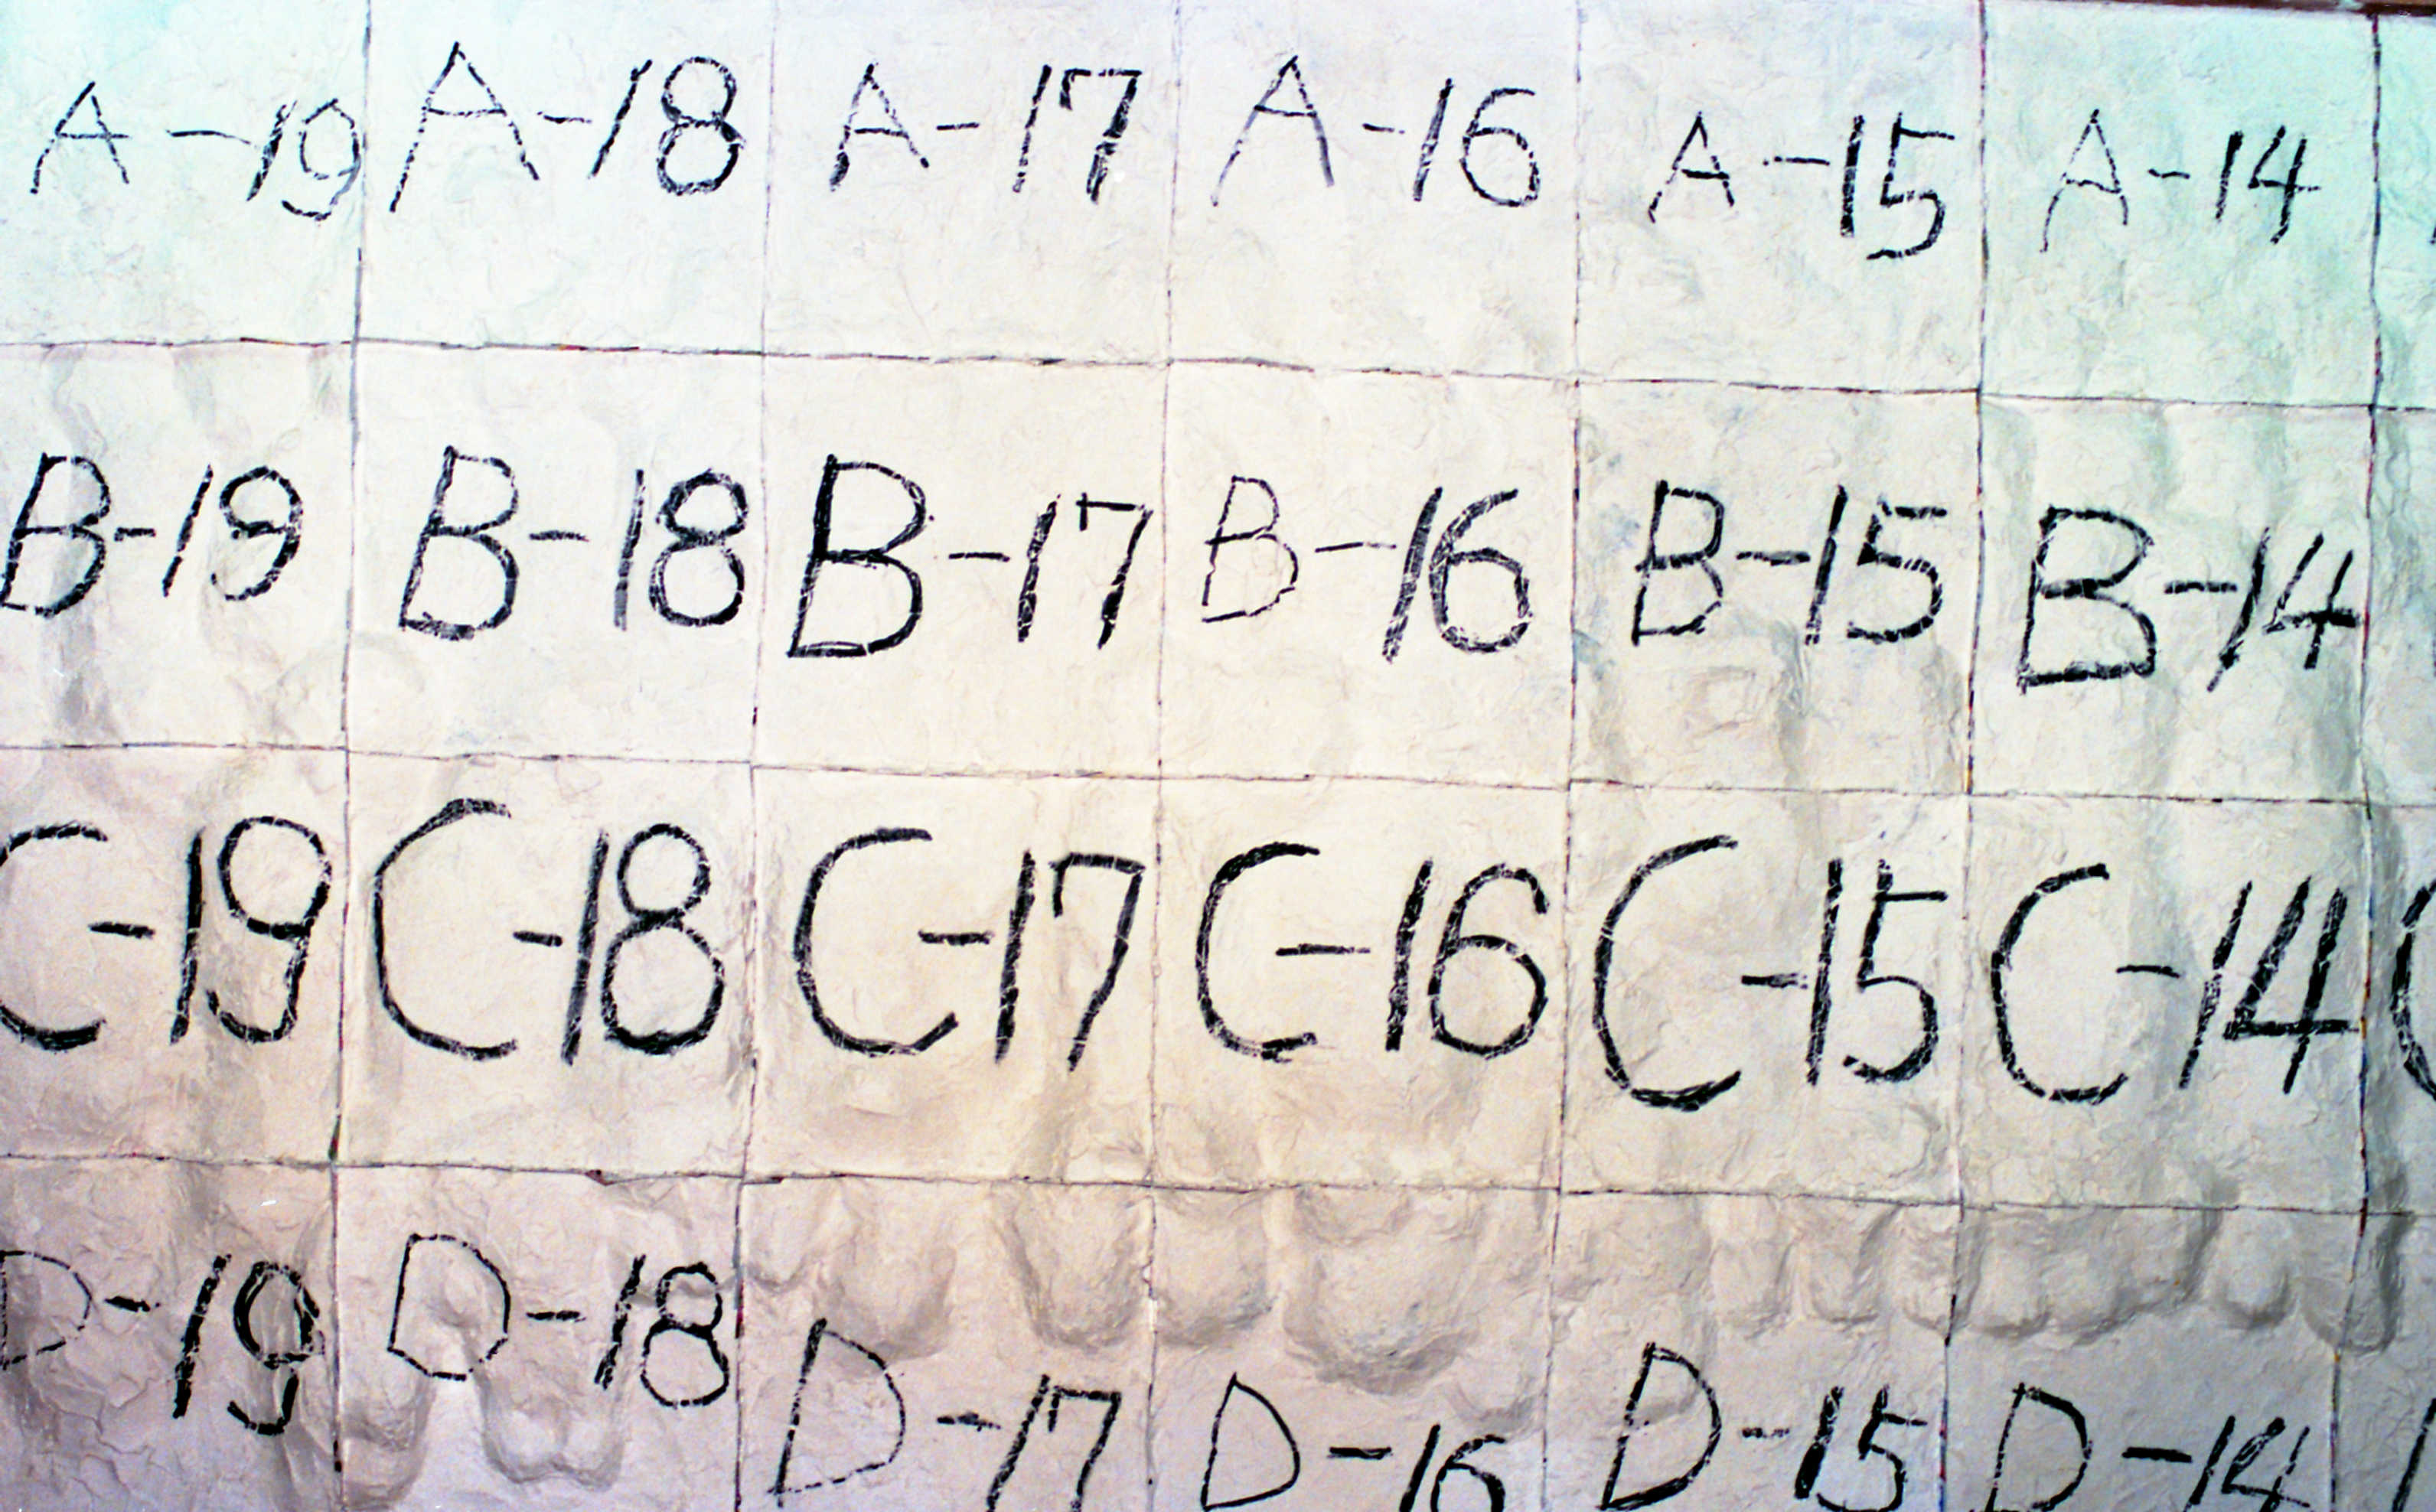 A-19 A-18 A-17 A-16 A-15 A-14
B-19 B-18 B-17 B-16 B-15 B-14
C-19 C-18 C-17 C-16 C-15 C-14
D-19 D-18 D-17 D-16 D-15 D-14